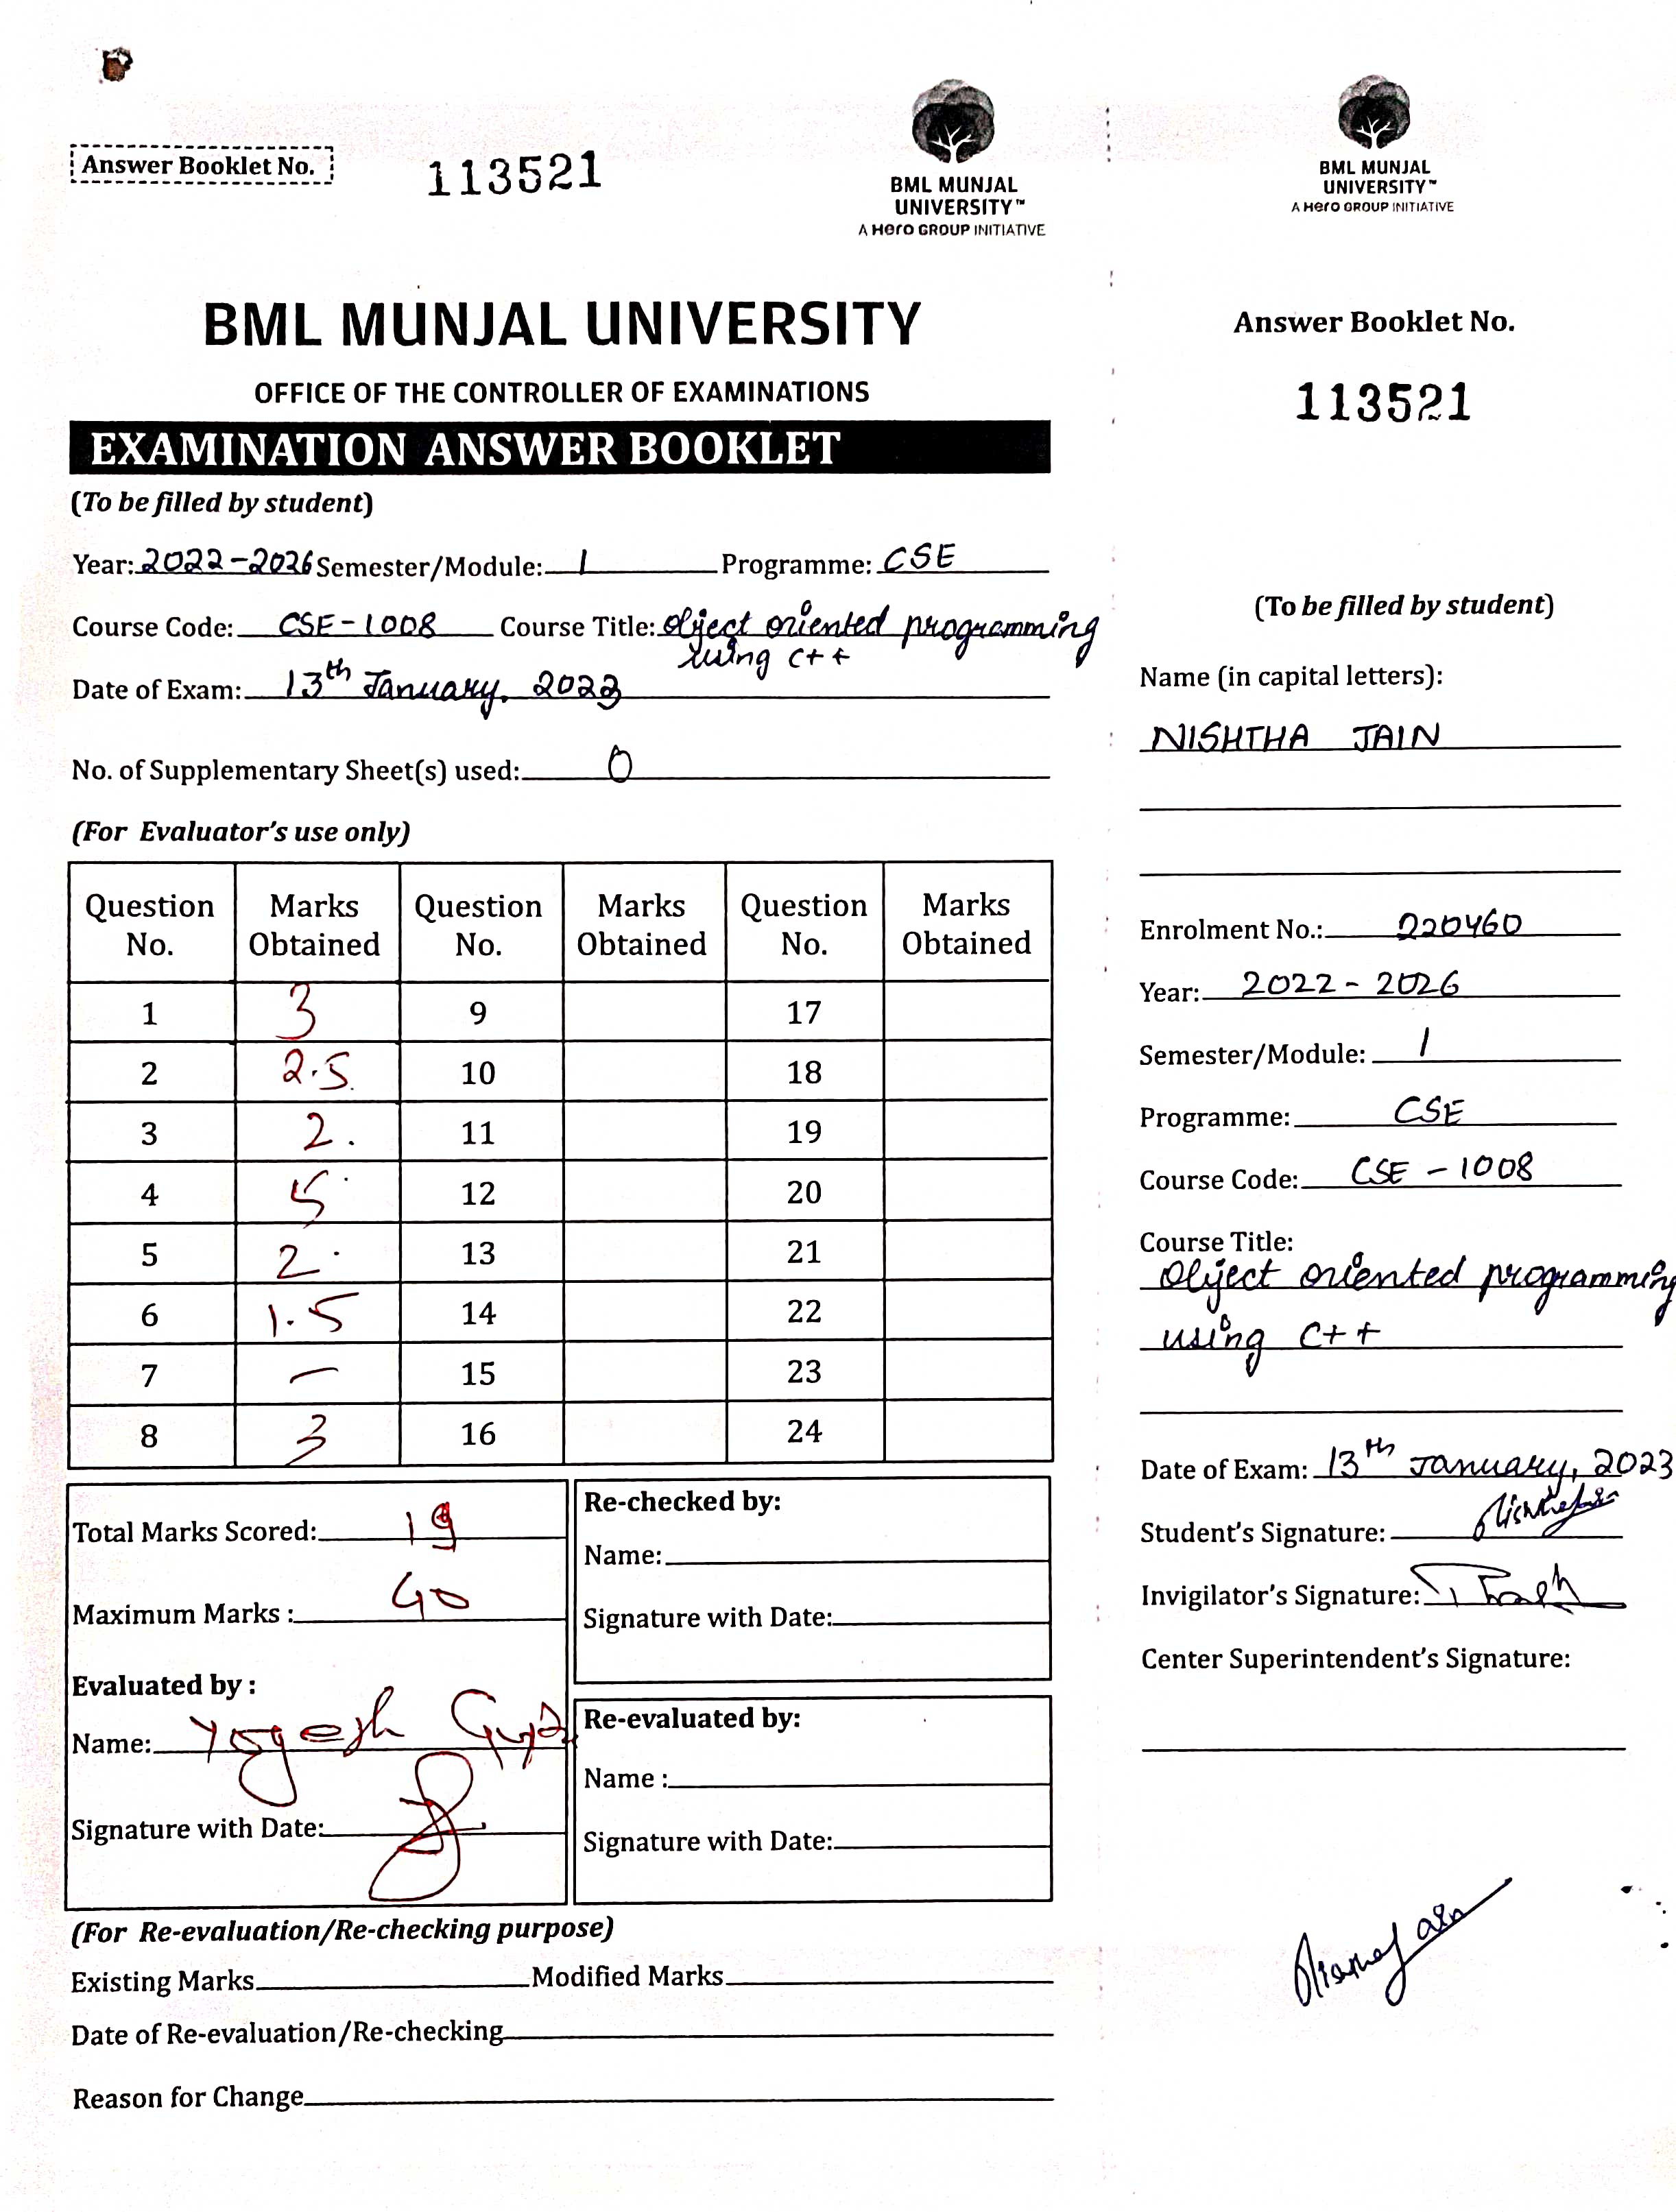 Answer Booklet No.
113521
BML MUNJAL
UNIVERSITY™
A Hero GROUP INITIATIVE
BML MUNJAL UNIVERSITY
OFFICE OF THE CONTROLLER OF EXAMINATIONS
EXAMINATION ANSWER BOOKLET
(To be filled by student)
Year: 2022-2026 Semester/Module: 1 Programme: CSE
Course Code: CSE-1008 Course Title: Object oriented programming
using C++
Date of Exam: 13th January, 2023
No. of Supplementary Sheet(s) used: 0
(For Evaluator's use only)
Question No. Marks Obtained Question No. Marks Obtained Question No. Marks Obtained
1 3 9 17
2 2.5 10 18
3 2. 11 19
4 5 12 20
5 2 13 21
6 1.5 14 22
7 — 15 23
8 3 16 24
Total Marks Scored: 19
Maximum Marks : 40
Evaluated by :
Name: Yogesh
Signature with Date:
Re-checked by:
Name:
Signature with Date:
Re-evaluated by:
Name :
Signature with Date:
(For Re-evaluation/Re-checking purpose)
Existing Marks Modified Marks
Date of Re-evaluation/Re-checking
Reason for Change
BML MUNJAL
UNIVERSITY™
A Hero GROUP INITIATIVE
Answer Booklet No.
113521
(To be filled by student)
Name (in capital letters):
NISHTHA JAIN
Enrolment No.: 220460
Year: 2022 - 2026
Semester/Module: 1
Programme: CSE
Course Code: CSE - 1008
Course Title:
Object oriented programming
using C++
Date of Exam: 13th January, 2023
Student's Signature:
Invigilator's Signature:
Center Superintendent's Signature: